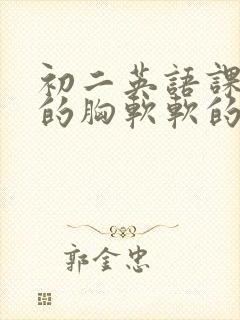 初二英語課
的胸軟軟的
郭金忠